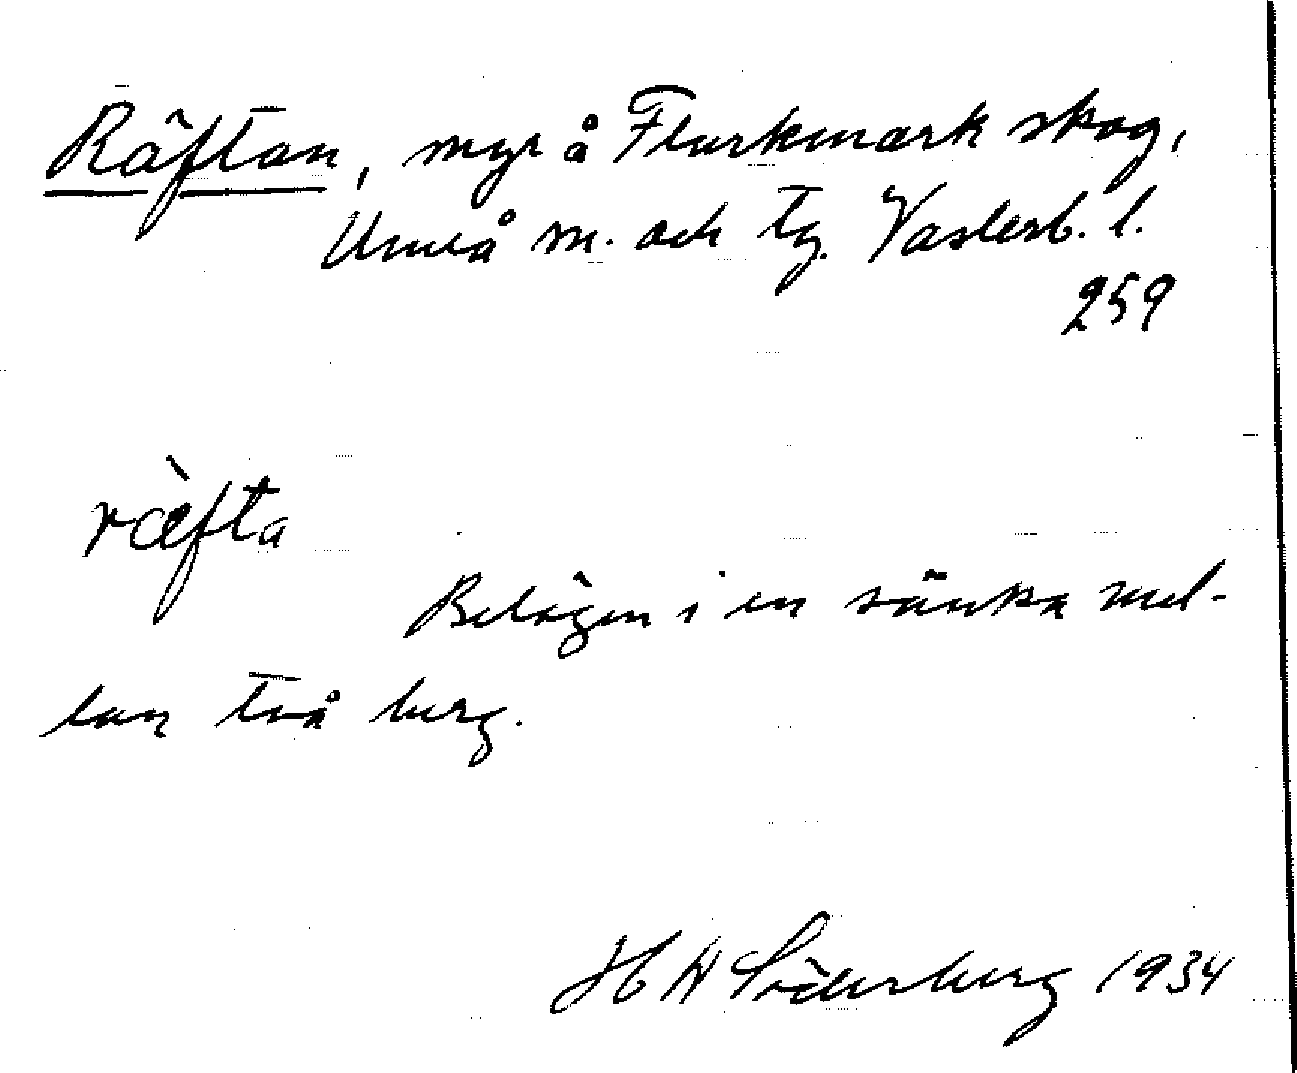 Räftan, myr å Flurkmark skog,
Umeå m. och tg. Västerb. l.
259
ræ̀fta
Belägen i en sänka mel-
lan två berg.
H W Söderberg 1934